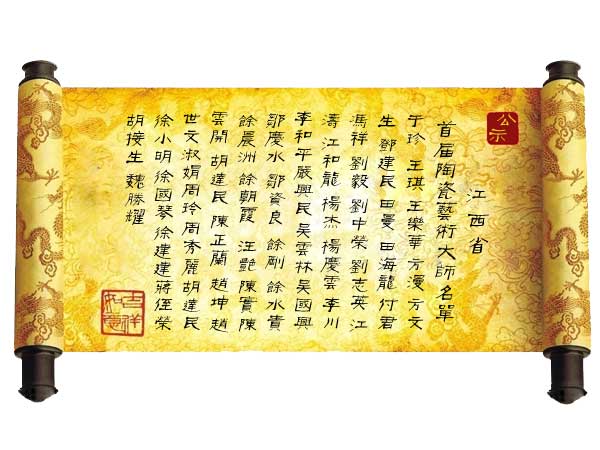 公示
江西省
首届陶瓷藝術大師名單
于珍 王琪 王樂華 方漫 方文
生 鄧建民 田曼 田海龍 付君
馮祥 劉毅 劉中榮 劉志英 江
濤 江和龍 楊杰 楊慶雲 李川
李和平 嚴興民 吴雲林 吴國興
鄒慶水 鄒資良 餘剛 餘水貴
餘晨洲 餘朝霞 汪艷 陳實 陳
雲開 胡建民 陳正蘭 趙坤 趙
世文 淑娟 周玲 周秀麗 胡建民
徐小明 徐國琴 徐建建 蔣侄榮
胡按生 魏勝耀
吉祥
如意